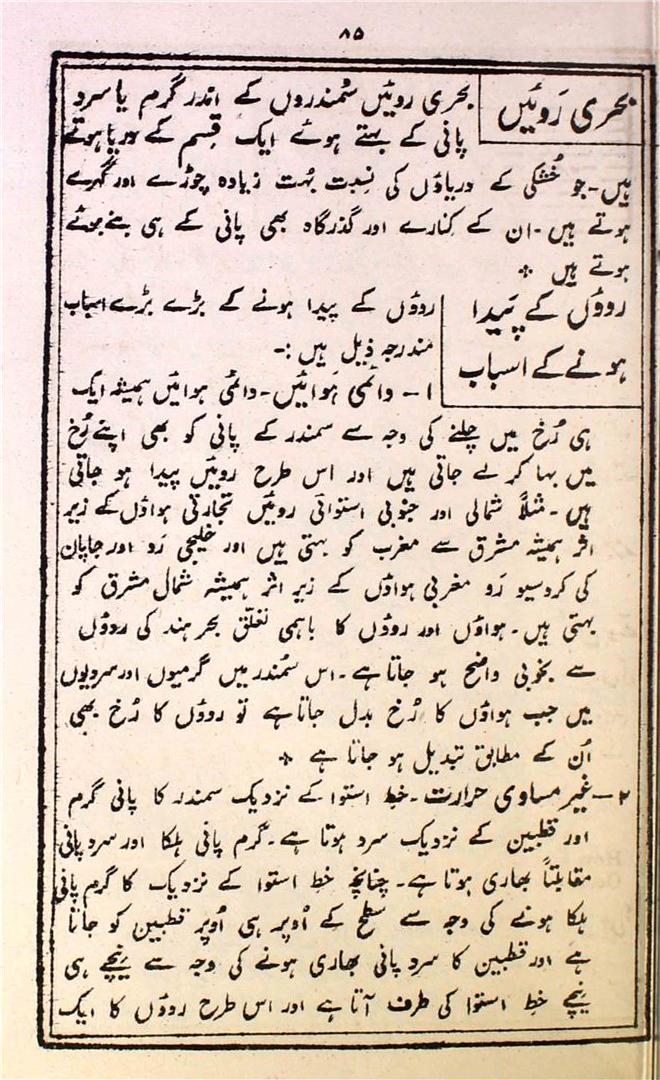 ۸۵
بحری رَوئیں
بحری روئیں سُمندروں کے اندر گرم یا سرد
پانی کے بہتے ہوئے ایک قِسم کے دریا ہوتے
ہیں۔ جو خُشکی کے دریاؤں کی نِسبت بہُت زیادہ چوڑے اور گہرے
ہوتے ہیں۔ ان کے کِنارے اور گذرگاہ بھی پانی کے ہی بنے ہوئے
ہوتے ہیں ٭
روؤں کے پَیدا
ہونے کے اسباب
روؤں کے پیدا ہونے کے بڑے بڑے اسباب
مندرجہ ذیل ہیں :۔
۱ - دائمی ہوائیں۔ دائمی ہوائیں ہمیشہ ایک
ہی رُخ میں چلنے کی وجہ سے سمندر کے پانی کو بھی اپنے رُخ
میں بہا کر لے جاتی ہیں اور اس طرح روئیں پیدا ہو جاتی
ہیں۔ مثلاً شمالی اور جنوبی استوائی روئیں تجارتی ہواؤں کے زیر
اثر ہمیشہ مشرق سے مغرب کو بہتی ہیں اور خلیجی رَو اور جاپان
کی کروسیو رَو مغربی ہواؤں کے زیر اثر ہمیشہ شمال مشرق کو
بہتی ہیں۔ ہواؤں اور روؤں کا باہمی تعلّق بحر ہند کی روؤں
سے بخوبی واضح ہو جاتا ہے۔ اس سُمندر میں گرمیوں اور سردیوں
میں جب ہواؤں کا رُخ بدل جاتا ہے تو روؤں کا رُخ بھی
اُن کے مطابق تبدیل ہو جاتا ہے ٭
۲ - غیر مساوی حرارت۔ خط استوا کے نزدیک سمندر کا پانی گرم
اور قطبین کے نزدیک سرد ہوتا ہے۔ گرم پانی ہلکا اور سرد پانی
مقابلتاً بھاری ہوتا ہے۔ چنانچہ خطِ استوا کے نزدیک کا گرم پانی
ہلکا ہونے کی وجہ سے سطح کے اُوپر ہی اُوپر قطبین کو جاتا
ہے اور قطبین کا سرد پانی بھاری ہونے کی وجہ سے نیچے ہی
نیچے خطِ استوا کی طرف آتا ہے اور اس طرح روؤں کا ایک